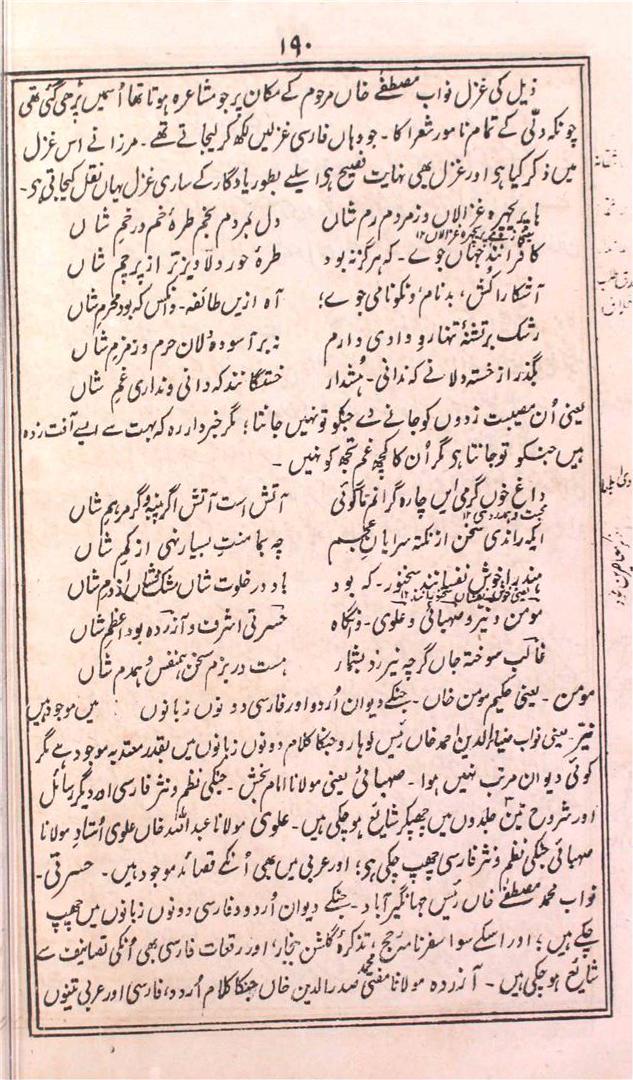 ۱۹۰
ذیل کی غزل نواب مصطفےٰ خاں مرحوم کے مکان پر جو مشاعرہ ہوتا تھا اُسمیں پڑھی گئی تھی
چونکہ دلّی کے تمام نامور شعرا کا - جو وہاں فارسی غزلیں لکھ کر لیجاتے تھے - مرزا نے اس غزل
میں ذکر کیا ہو اور غزل بھی نہایت فصیح ہو اسلیے بطور یادگار کے ساری غزل یہاں نقل کیجاتی ہو -
ہا پریچہرہ غزالاں و ز مردم رم شاں
دل مردم بخم طرۂ خم در خم شاں
کافرانند جہاں جوے - کہ ہرگز نبود
طرۂ حور دلاویز تر از پرچم شاں
آشکارا کُش، بدنام و نکونامی جوے؛
آہ ازیں طائفہ - و انکس کہ بود محرم شاں
رشک بر تشنۂ تنہا رو وادی دارم
نہ بر آسودہ دلان حرم و زمزم شاں
بگذر از خستہ دلانے کہ ندانی - ہُشدار
خستگانند کہ دانی و نداری غمِ شاں
یعنی اُن مصیبت زدوں کو جانے دے جنکو تو نہیں جانتا؛ مگر خبردار رہ کہ بہت سے ایسے آفت زدہ
ہیں جنکو تو جانتا ہو مگر اُن کا کچھ غم تجھ کو نہیں -
داغ خوں گرمی ایں چارہ گرانم گوئی
آتش است آتش اگر پنبہ و گر مرہم شاں
محبت و ہمدردی ۱۲
ایکہ راندی سخن از نکتہ سرایانِ عجم
چہ بما منتِ بسیار نہی از کمِ شاں
ہند را خوش نفسانند سخنور - کہ بود
باد در خلوت شاں مشک فشاں از دم شاں
مومن و نیّر و صہبائی و علوی - وانگاہ
حسرتی اشرف و آزردہ بود اعظم شاں
غالب سوختہ جاں گرچہ نیرزد بشمار
ہست در بزم سخن ہمنفس و ہمدم شاں
مومن - یعنی حکیم مومن خاں - جنکے دیوان اُردو اور فارسی دونوں زبانوں میں موجود ہیں
نیّر - یعنی نواب ضیاءالدین احمد خاں رئیس لوہارو جنکا کلام دونوں زبانوں میں بقدر معتدبہ موجود ہے مگر
کوئی دیوان مرتب نہیں ہوا - صہبائی یعنی مولانا امام بخش - جنکی نظم و نثر فارسی اور دیگر رسائل
اور شروح تین جلدوں میں چھپکر شایع ہو چکی ہیں - علوی مولانا عبداللہ خاں علوی اُستادِ مولانا
صہبائی جنکی نظم و نثر فارسی چھپ چکی ہو؛ اور عربی میں بھی اُنکے قصائد موجود ہیں - حسرتی -
نواب محمد مصطفےٰ خاں رئیس جہانگیرآباد - جنکے دیوان اُردو و فارسی دونوں زبانوں میں چھپ
چکے ہیں؛ اور اسکے سوا سفرنامۂ حج، تذکرۂ گلشن بیخار، اور رقعات فارسی بھی اُنکی تصانیف سے
شایع ہو چکی ہیں - آزردہ مولانا مفتی محمد صدرالدین خاں جنکا کلام اُردو، فارسی اور عربی تینوں